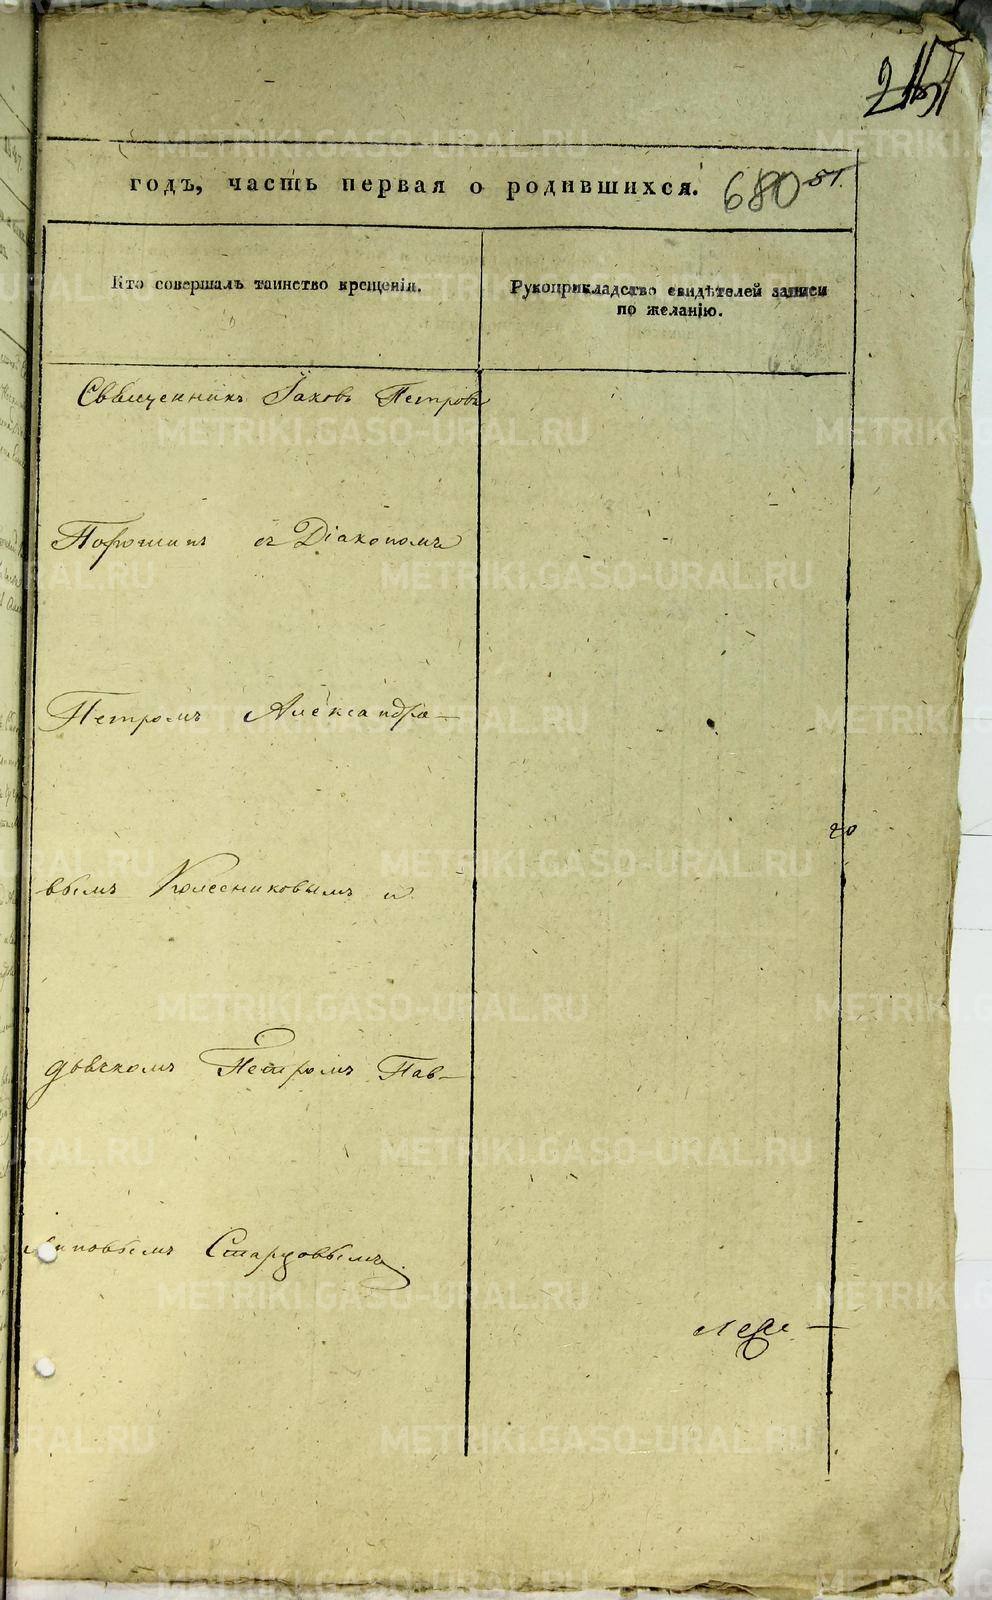 годъ, часть первая о родившихся. 680 51.
Кто совершалъ таинство крещенія.
Рукоприкладство свидѣтелей записи
по желанію.
Священникъ Іаковъ Петровъ
Порошинъ съ Діакономъ
Петромъ Александро-
20
вымъ Колесниковымъ и
дьячкомъ Петромъ Пав-
линовымъ Старцовымъ.
METRIKI.GASO-URAL.RU